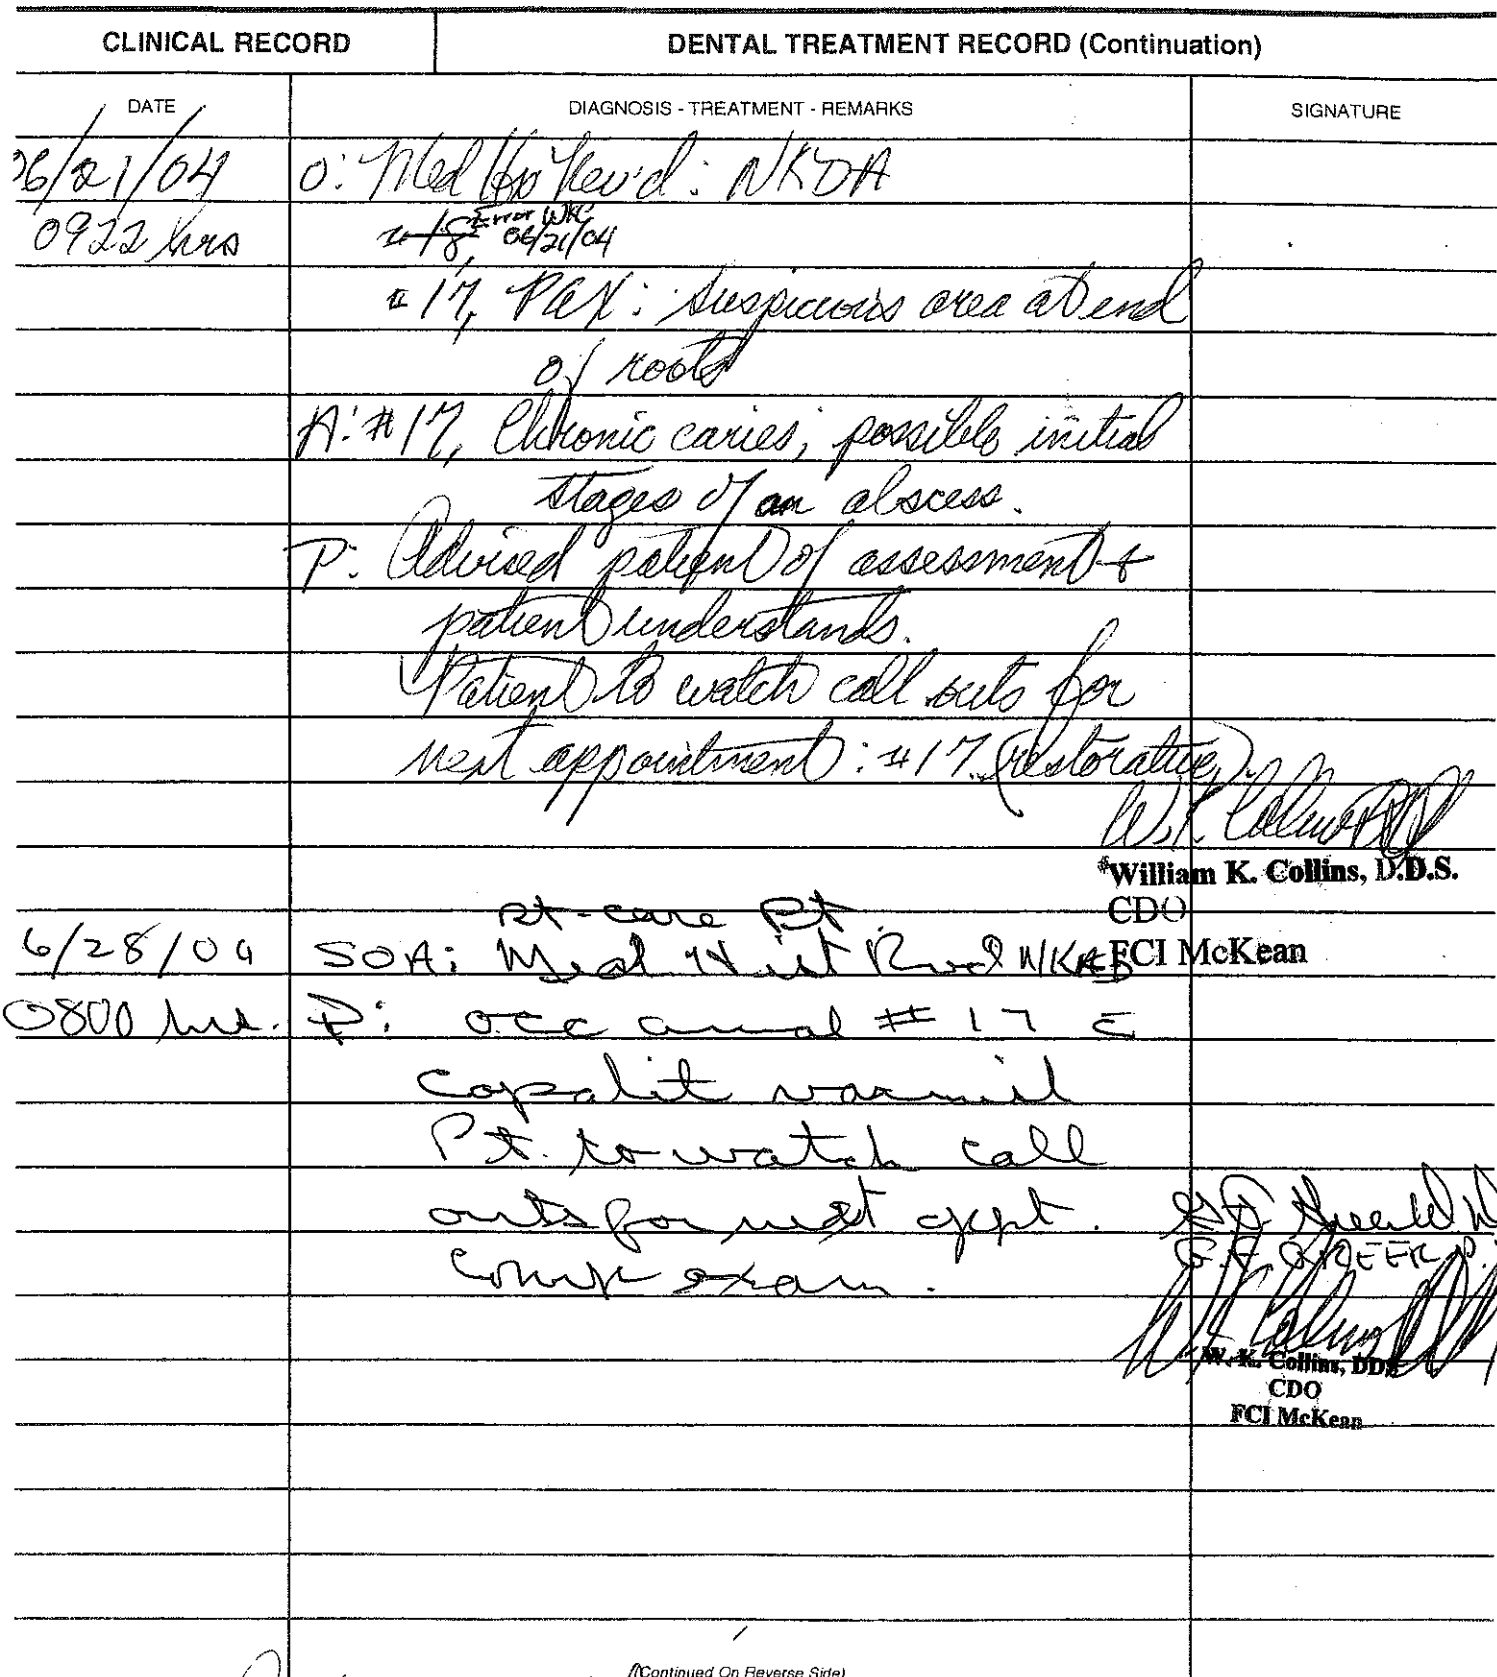 CLINICAL RECORD DENTAL TREATMENT RECORD (Continuation)
DATE DIAGNOSIS - TREATMENT - REMARKS SIGNATURE
06/21/04 O: Med Hx Rev'd: NKDA
0922 hrs #18, Error WKC 06/21/04
#17, PAX: suspicious area at end
of roots
A: #17, Chronic caries; possible initial
stages of an abscess.
P: Advised patient of assessment &
patient understands.
Patient to watch call outs for
next appointment: #17 (restorative).
William K. Collins, D.D.S.
CDO
care Pt.
6/28/04 SOA: Med Hist Rvd FCI McKean
0800 hrs. P: occ amal #17 c̄
copalit varnish
Pt. to watch call
outs for next appt.
comp exam. G.F. GREER
W. K. Collins, DDS
CDO
FCI McKean
(Continued On Reverse Side)